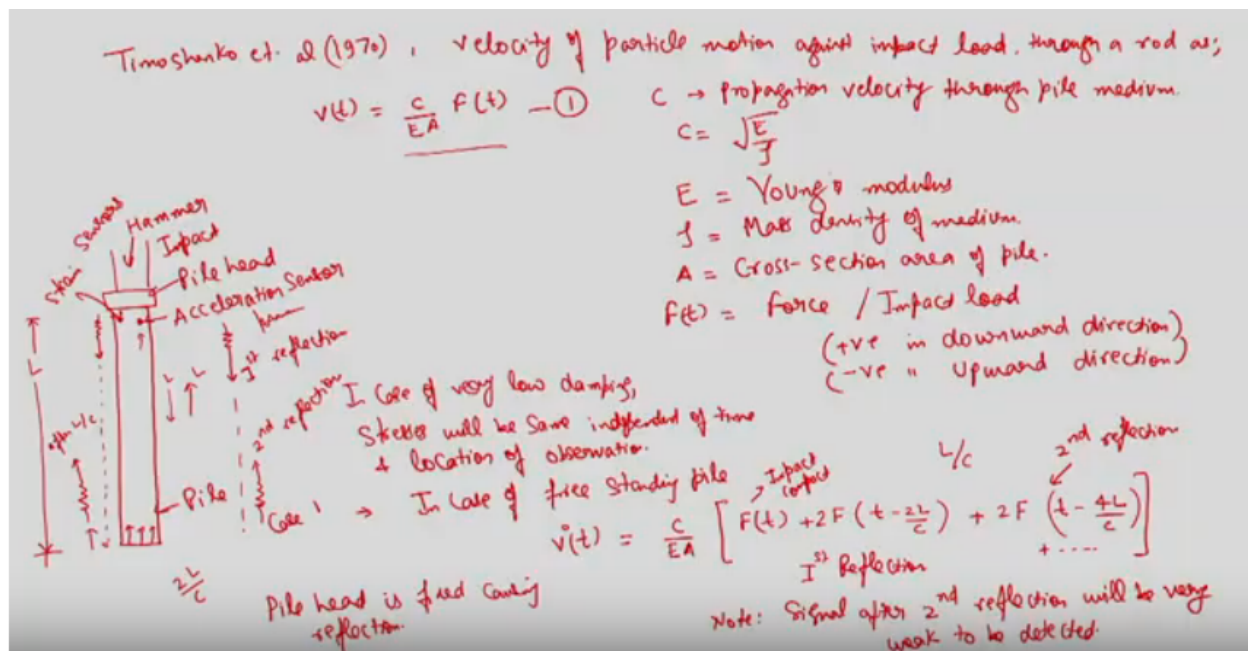 Timoshenko et. al (1970), velocity of particle motion against impact load. through a rod as;
v(t) = C/EA F(t) — ①
C → Propagation velocity through pile medium.
C = √E/ρ
E = Young's modulus
ρ = Mass density of medium.
A = Cross-section area of pile.
F(t) = Force / Impact load
(+ve in downward direction)
(-ve " upward direction)
Strain Sensors
Hammer
Impact
Pile head
Acceleration Sensor
Ist reflection
2nd reflection
L
L L
after L/C
Pile
2L/C
In case of very low damping,
Stresses will be same independent of time
& location of observation.
Case 1 → In case of free standing pile
L/C
2nd reflection
Impact
v(t) = C/EA [F(t) + 2F (t - 2L/C) + 2F (t - 4L/C) + ....]
Ist Reflection
Pile head is fixed causing
reflection.
Note: Signal after 2nd reflection will be very
weak to be detected.